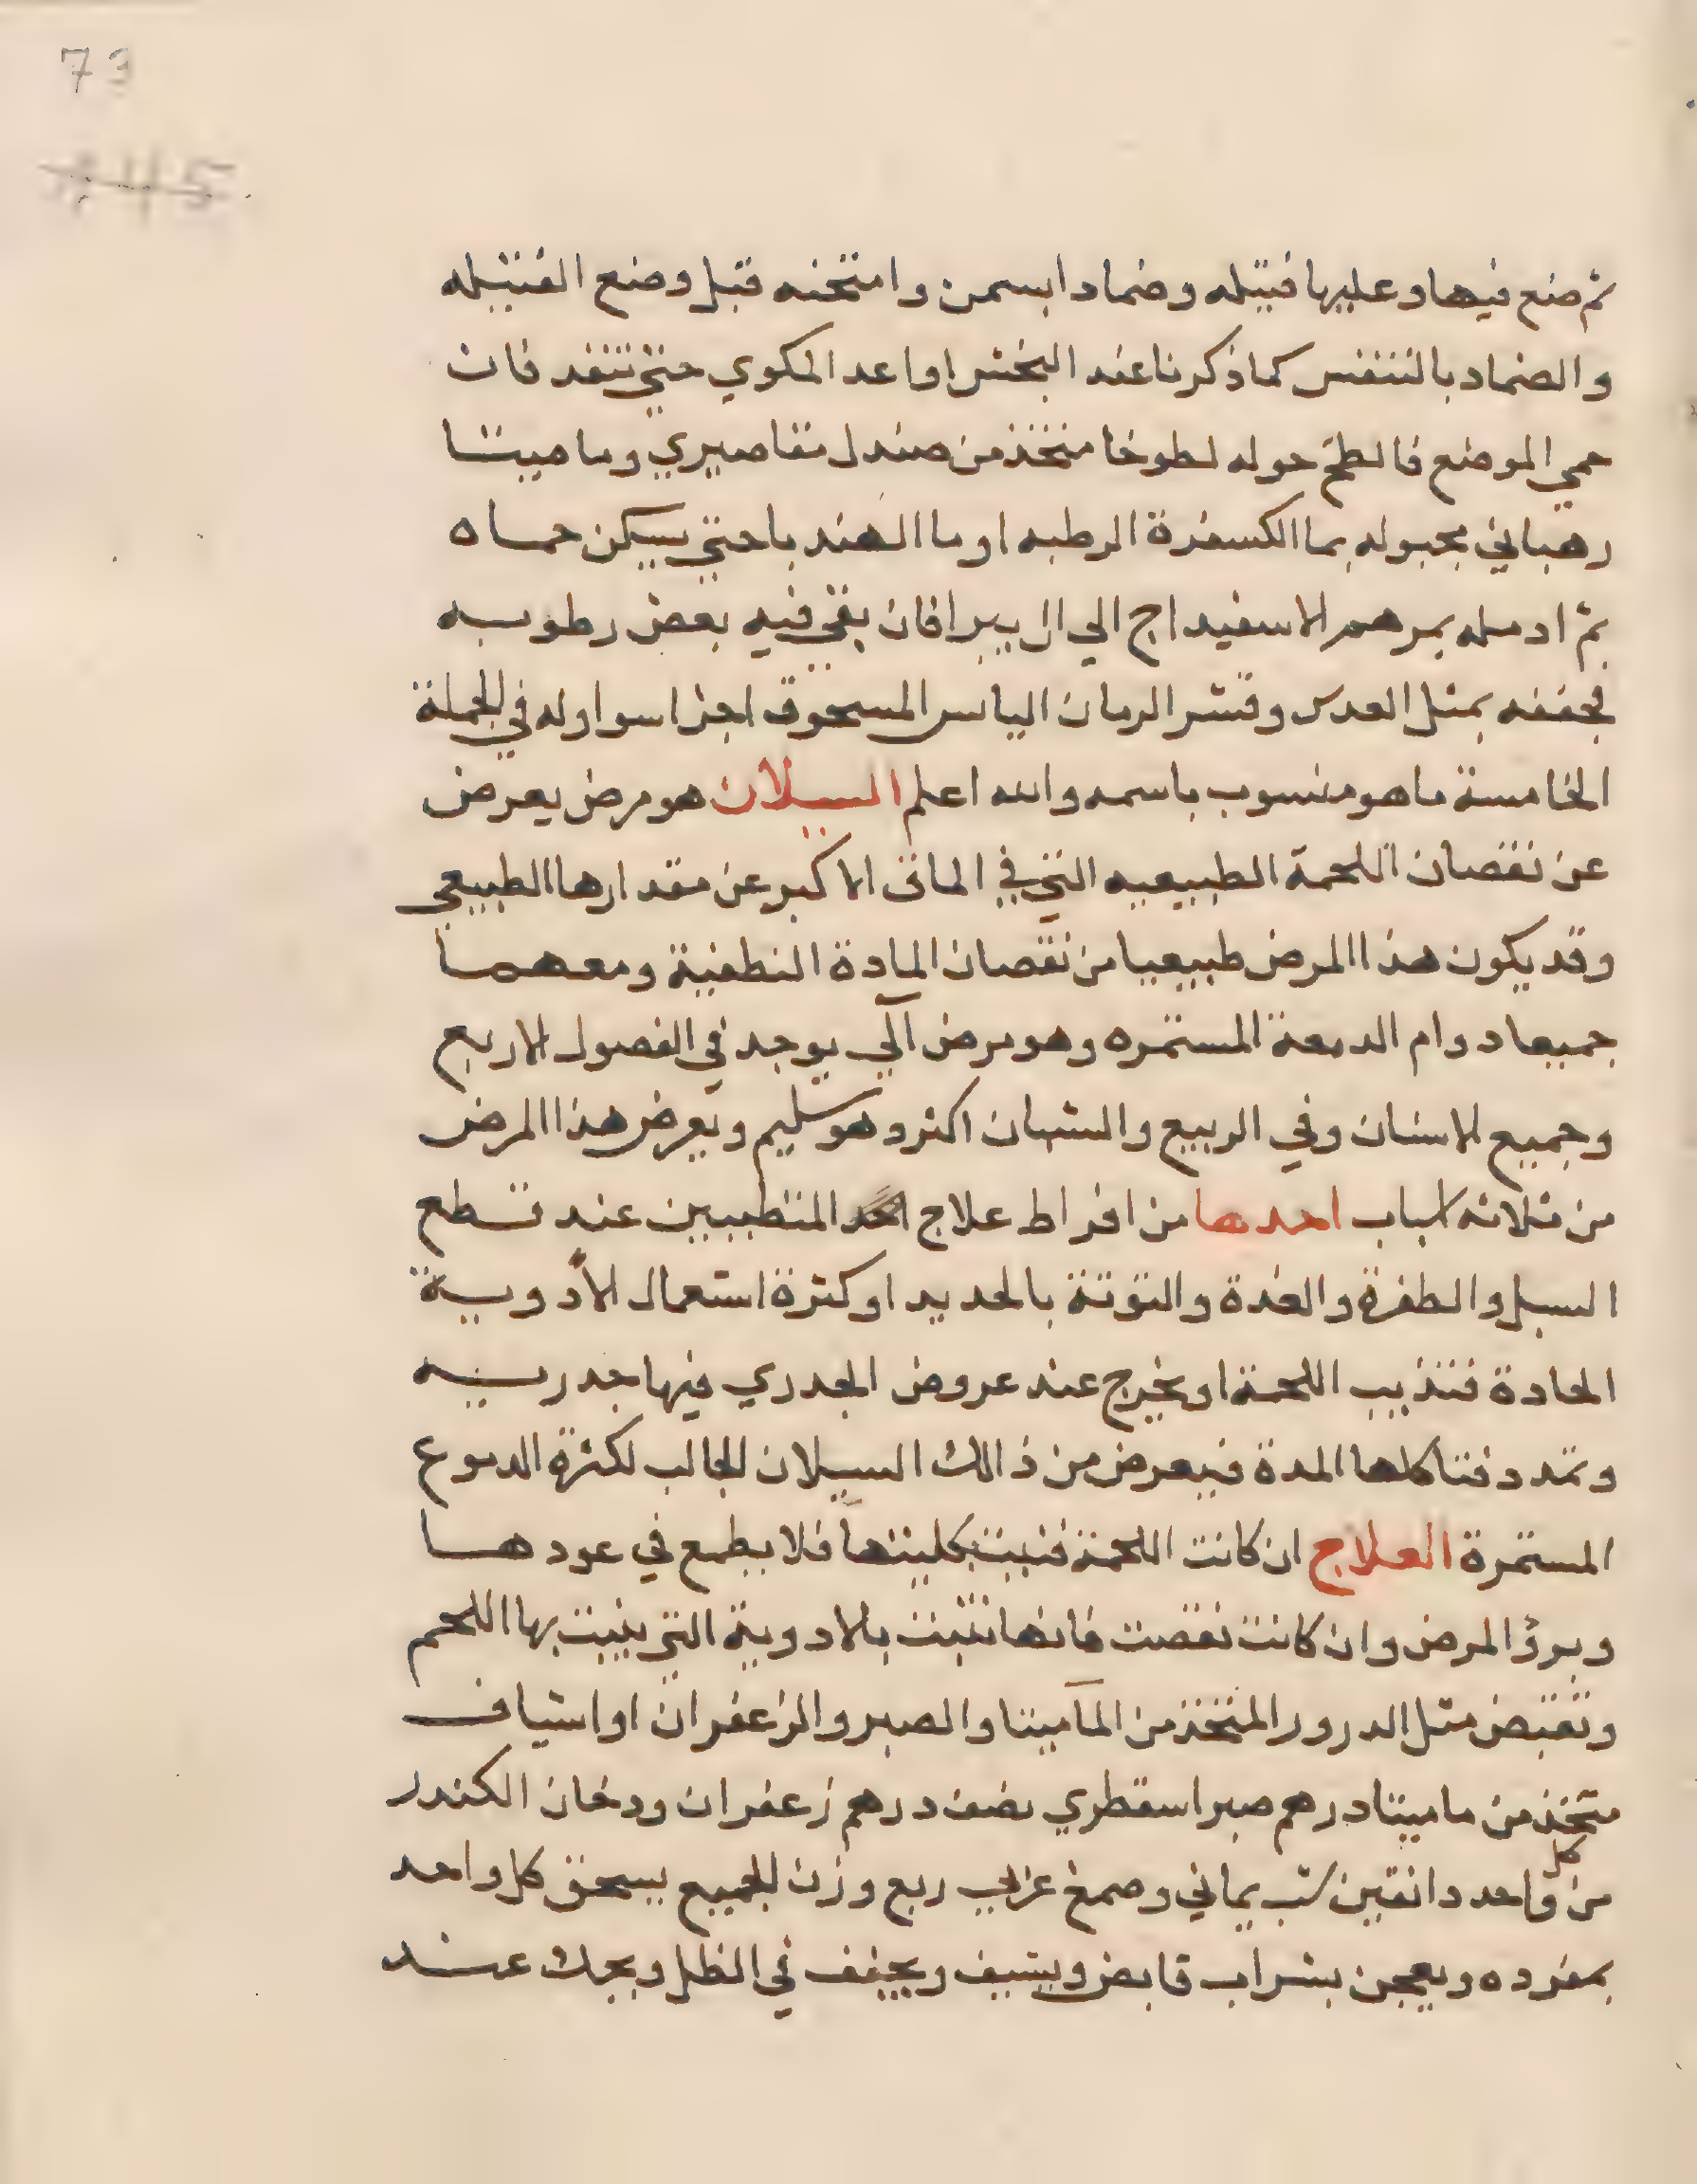 73
145
ثم ضع فيها وعليها فتيله وضمادا بسمن وامتحنه قبل وضع الفتيله
والضماد بالتنفس كما ذكرنا عند البخش او اعد المكوي حتي تنفد فان
حمي الموضع فالطخ حوله لطوخا متخذ من صندل مقاصيري وماميتا
رهباني مجبوله بما الكسفرة الرطبه او ما الهندبا حتي يسكن حماه
ثم ادمله بمرهم الاسفيداج الي ال يبرا فان بقي فيه بعض رطوبه
فجففه بمثل العدس وقشر الرمان اليابس المسحوق اجزا سوا وله في الجملة
الخامسة ما هو منسوب باسمه والله اعلم السيلان هو مرض يعرض
عن نقصان اللحمة الطبيعيه التي في الماق الاكبر عن مقدارها الطبيعي
وقد يكون هذا المرض طبيعيا من نقصان المادة النطفية ومعهما
جميعا دوام الدمعة المستمره وهو مرض آلي يوجد في الفصول الاربع
وجميع الاسنان وفي الربيع والشبان اكثر وهو سليم ويعرض هذا المرض
من ثلاثه اسباب احدها من افراط علاج المتطببين عند قطع
السبل والظفرة والغدة والتوتة بالحديد او كثرة استعمال الأدوية
الحادة فتذيب اللحمة او يخرج عند عروض الجدري فيها جدريه
وتمدد فتاكلها المدة فيعرض من ذالك السيلان الجالب لكثرة الدموع
المستمرة العلاج ان كانت اللحمة فنيت بكليتها فلا يطمع في عودها
وبرؤ المرض وان كانت نقصت فانها تنبت بالادوية التي ينبت بها اللحم
وتقبض مثل الدرور المتخذ من المآميتا والصبر والزعفران او اشياف
متخذ من ماميتا درهم صبر اسقطري نصف درهم زعفران ودخان الكندر
من كل واحد دانقين شب يماني وصمغ عربي ربع وزن الجميع يسحق كل واحد
بمفرده ويعجن بشراب قابض ويشيف ويجفف في الظل ويحك عند